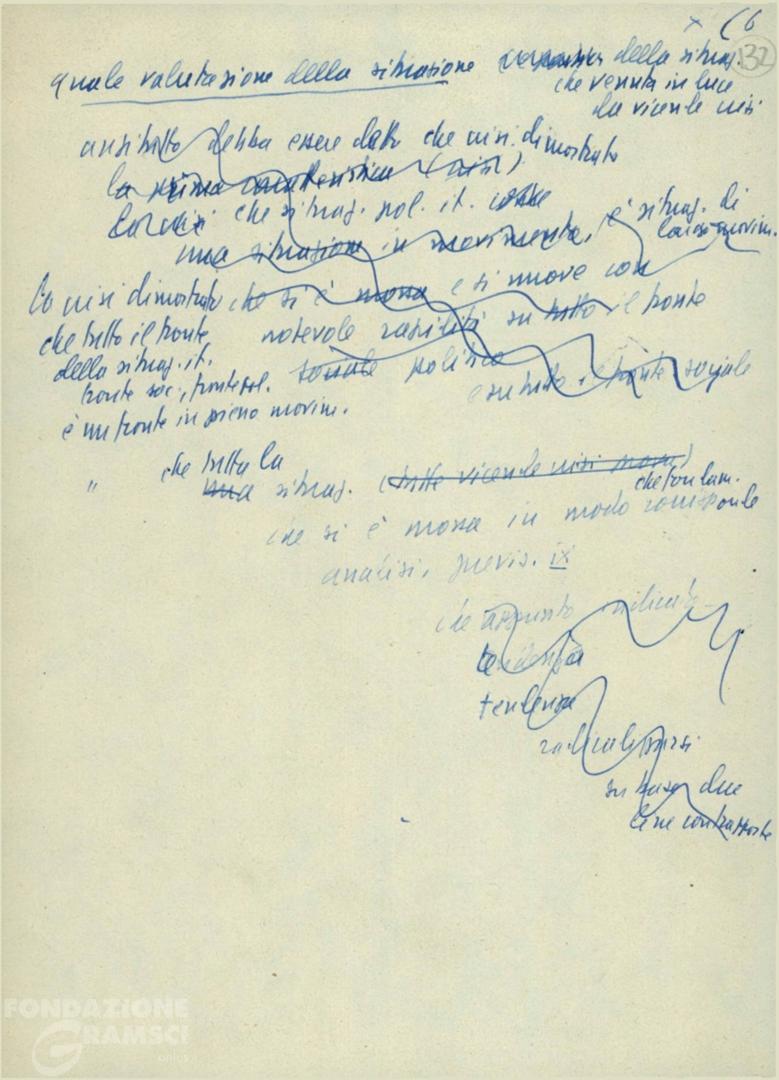 x 66
132
quale valutazione della situazione della situaz.
che venuta in luce
da vicende crisi
anzitutto debba essere dato che crisi dimostrato
la prima caratteristica (crisi)
che situaz. pol. it.
una situazione in movimento, è situaz. di
movim.
La crisi dimostrato che si è mossa e si muove con
che tutto il fronte notevole rapidità su tutto il fronte
della situaz. it. sociale politico
fronte soc., fronte pol. e su tutto il fronte sociale
è un fronte in pieno movim.
" che tutta la
una situaz. (tutte vicende crisi)
che fondam.
che si è mossa in modo corrisponde
analisi, previs. IX
che appunto indicato
tendenza
tendenza
radicalizzarsi
su base due
linee contrapposte
FONDAZIONE
GRAMSCI
onlus